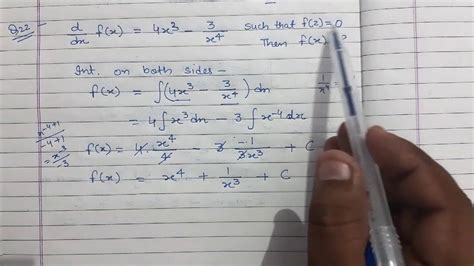 Q22 d/dx f(x) = 4x³ - 3/x⁴ such that f(2)=0
Then f(x)
Int. on both sides -
f(x) = ∫(4x³ - 3/x⁴) dx
1/x⁴
= 4∫x³dx - 3∫x⁻⁴dx
x⁻⁴⁺¹/-4+1
= x⁻³/-3
f(x) = 4 x⁴/4 - 3 -1/3x³ + C
f(x) = x⁴ + 1/x³ + C